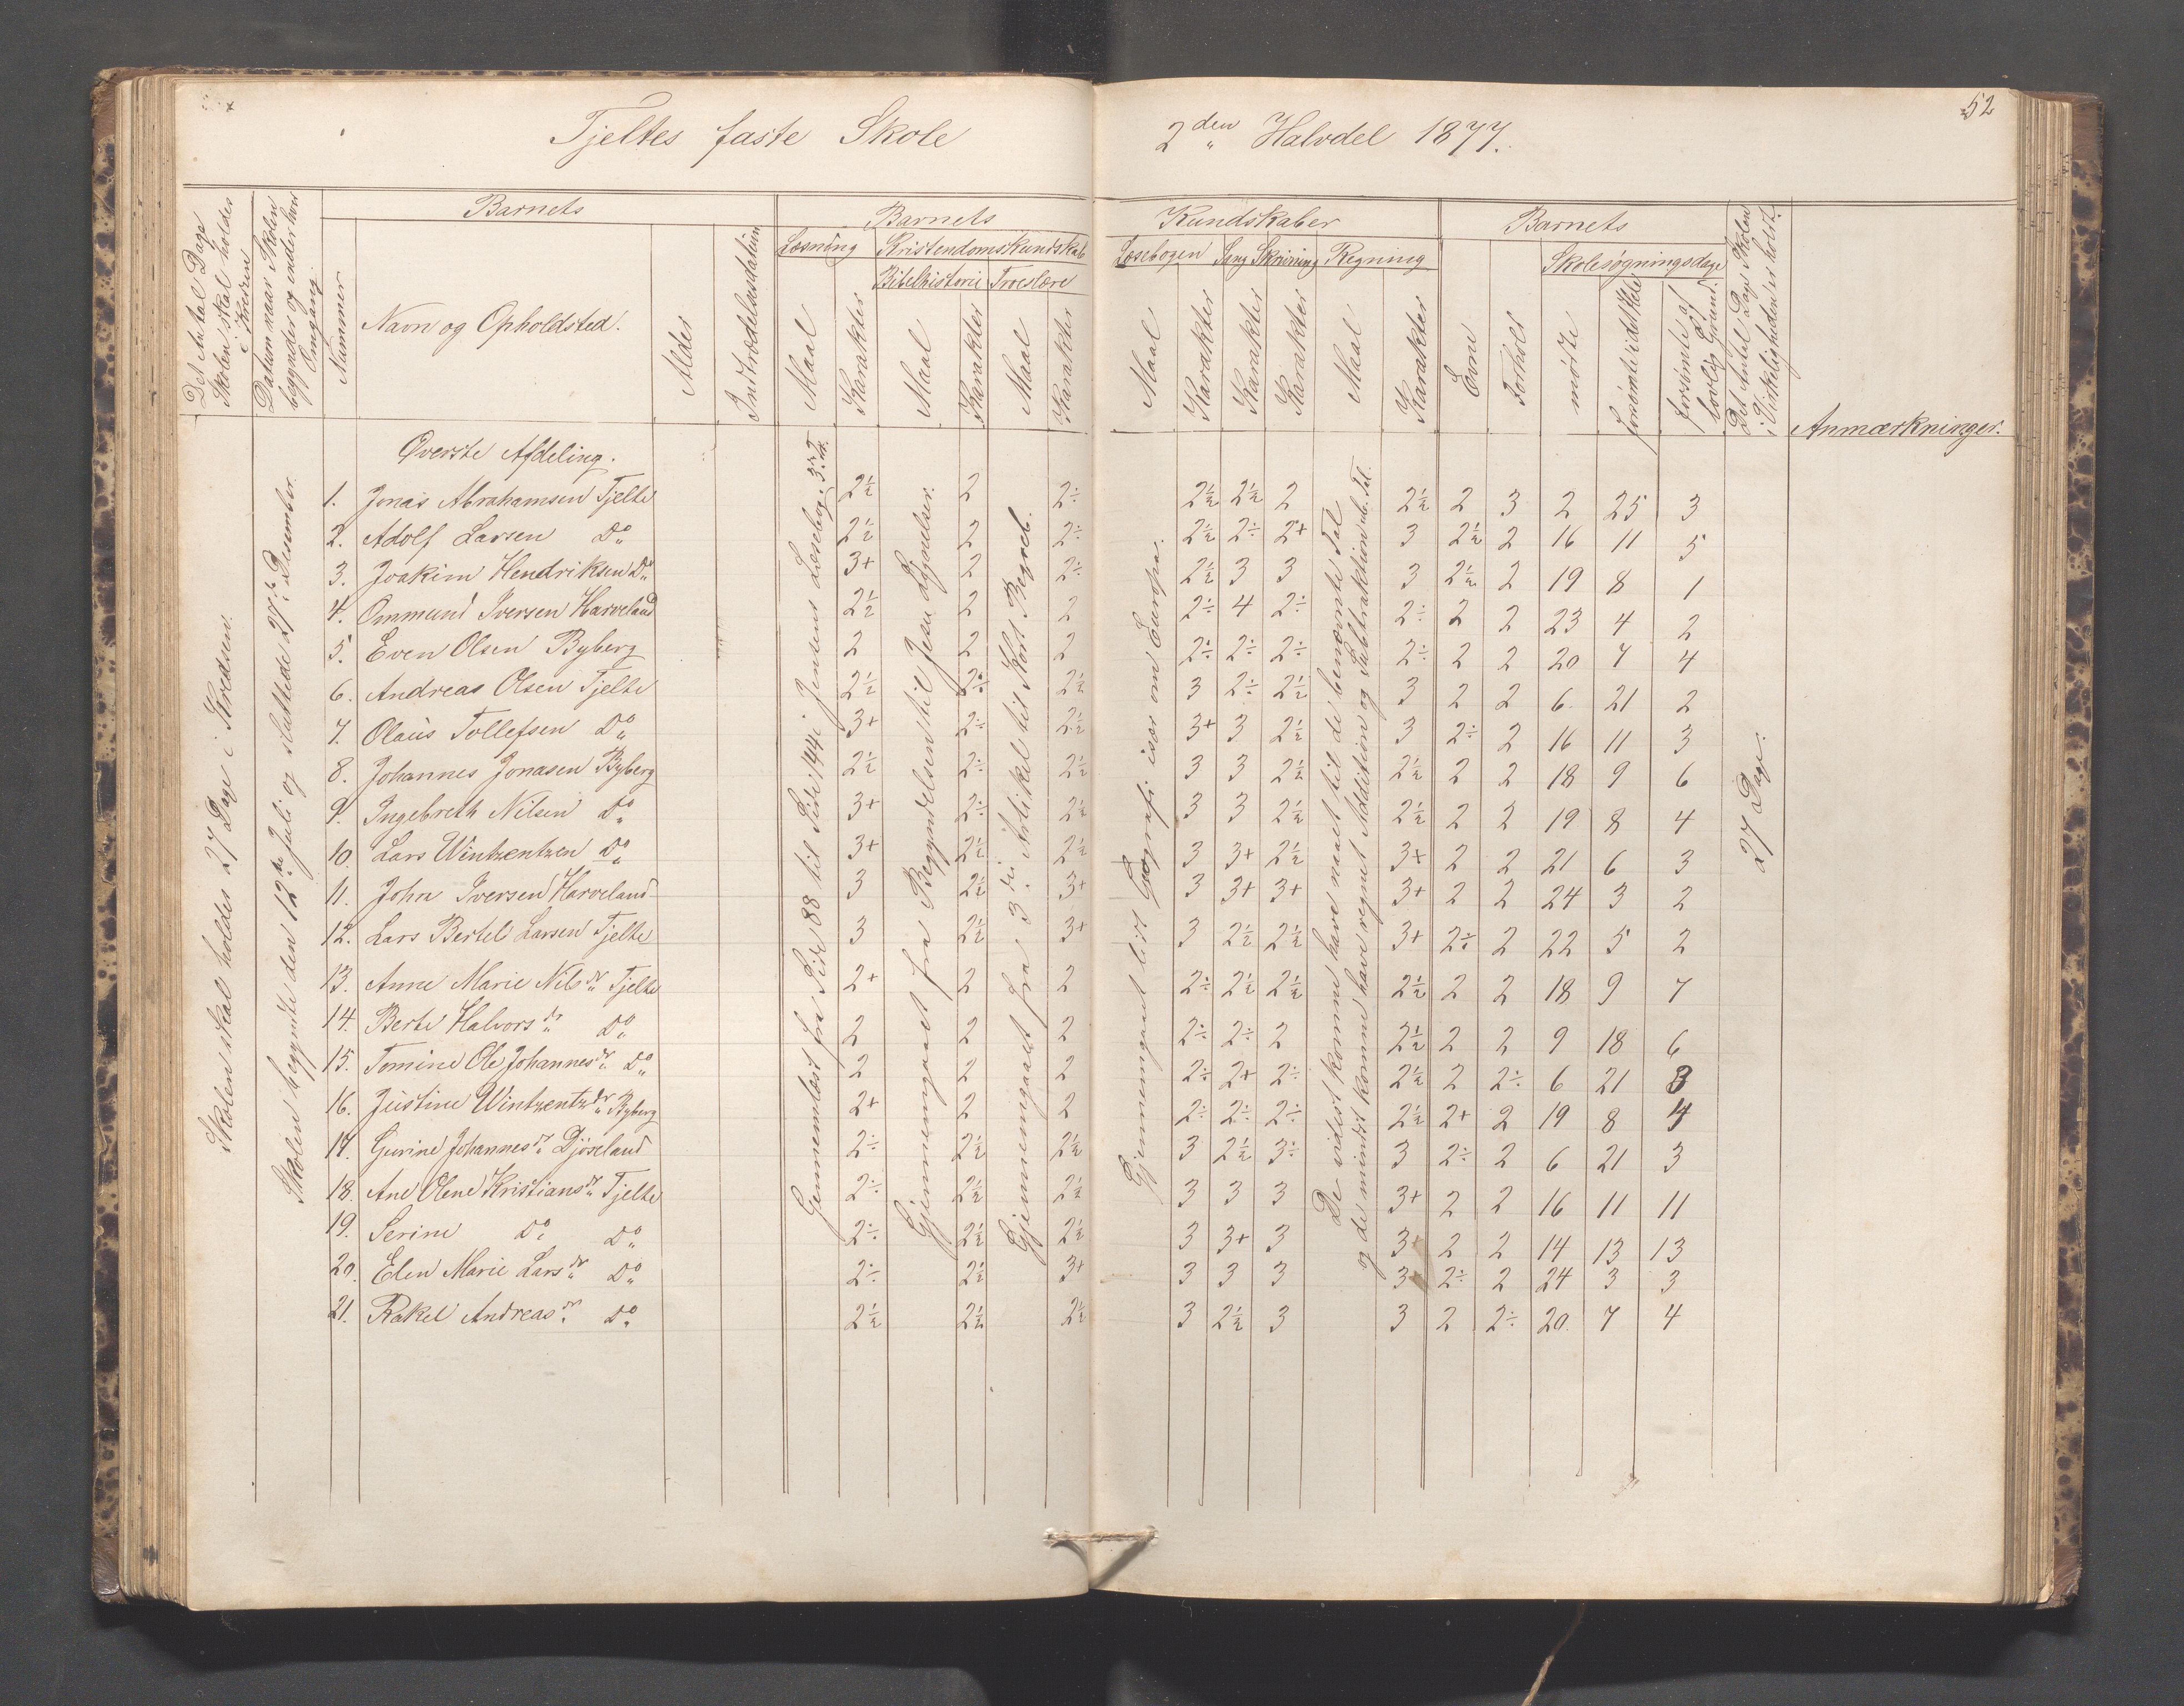 52
Tjeltes faste Skole
2den Halvdel 1877.
Det Antal Dage Skolen skal holdes i Kredsen
Datum naar Skolen begynder og ender hver Omgang
Nummer
Barnets
Navn og Opholdsted.
Alder
Indtrædelsesdatum
Barnets
Læsning
Kristendomskundskab
Bibelhistorie
Troeslære
Maal
Karakter
Maal
Karakter
Maal
Karakter
Kundskaber
Læsebogen
Sang
Skrivning
Regning
Maal
Karakter
Karakter
Karakter
Maal
Karakter
Barnets
Evne
Forhold
Skolesøgningsdage
mødte
forsømte i det Hele
forsømte af lovlig Grund.
Det Antal Dage Skolen i Virkeligheden er holdt.
Anmærkninger.
Skolen skal holdes 27 Dage i Kredsen.
Skolen begyndte den 12te Juli og sluttede 27de Desember.
Gjennemlæst fra Side 88 til Side 144 i Jensens Læsebog, 3die T.
Gjennemgaaet fra Begyndelsen til Jesu Lignelser.
Gjennemgaaet fra 3die Artikel til Kort Begreb.
Gjennemgaaet lidt Geografi især om Europa.
De videst komne have naaet til de benævnte Tal
og de mindst komne have regnet Addition og Subtraktion ub. Tal.
27 Dage.
Øverste Afdeling.
1. Jonas Abrahamsen Tjelte 2½ 2 2÷ 2½ 2½ 2 2½ 2 3 2 25 3
2. Adolf Larsen Do 2½ 2 2÷ 2½ 2÷ 2+ 3 2½ 2 16 11 5
3. Joakim Hendriksen Do 3+ 2 2÷ 2½ 3 3 3 2½ 2 19 8 1
4. Ommund Iversen Harveland 2½ 2 2 2÷ 4 2÷ 2÷ 2 2 23 4 2
5. Even Olsen Byberg 2 2 2 2÷ 2÷ 2÷ 2÷ 2 2 20 7 4
6. Andreas Olsen Tjelte 2½ 2÷ 2½ 3 2÷ 2½ 3 2 2 6 21 2
7. Olaus Tollefsen Do 3+ 2÷ 2½ 3+ 3 2½ 3 2÷ 2 16 11 3
8. Johannes Jonasen Byberg 2½ 2÷ 2½ 3 3 2½ 2½ 2 2 18 9 6
9. Ingebreth Nilsen Do 3+ 2÷ 2½ 3 3 2½ 2½ 2 2 19 8 4
10. Lars Wintzentzen Do 3+ 2½ 2½ 3 3+ 2½ 3+ 2 2 21 6 3
11. John Iversen Harveland 3 2½ 3+ 3 3+ 3+ 3+ 2 2 24 3 2
12. Lars Bertel Larsen Tjelte 3 2½ 3+ 3 2½ 2½ 3+ 2÷ 2 22 5 2
13. Anne Marie Nilsdr Tjelte 2+ 2 2 2÷ 2½ 2½ 2½ 2 2 18 9 7
14. Berte Halvorsdr Do 2 2 2 2÷ 2÷ 2 2½ 2 2 9 18 6
15. Tomine Ole Johannesdr Do 2 2 2 2÷ 2+ 2÷ 2½ 2 2÷ 6 21 3
16. Justine Wintzentzdr Byberg 2+ 2 2 2÷ 2÷ 2÷ 2½ 2+ 2 19 8 4
17. Gurine Johannesdr Djøseland 2÷ 2½ 2½ 3 2½ 3÷ 3 2÷ 2 6 21 3
18. Ane Olene Kristiansdr Tjelte 2÷ 2½ 2½ 3 3 3 3+ 2 2 16 11 11
19. Serine Do Do 2÷ 2½ 2½ 3 3+ 3 3+ 2 2 14 13 13
20. Elen Marie Larsdr Do 2÷ 2½ 3+ 3 3 3 3+ 2÷ 2 24 3 3
21. Rakel Andreasdr Do 2½ 2½ 2½ 3 2½ 3 3 2 2÷ 20 7 4